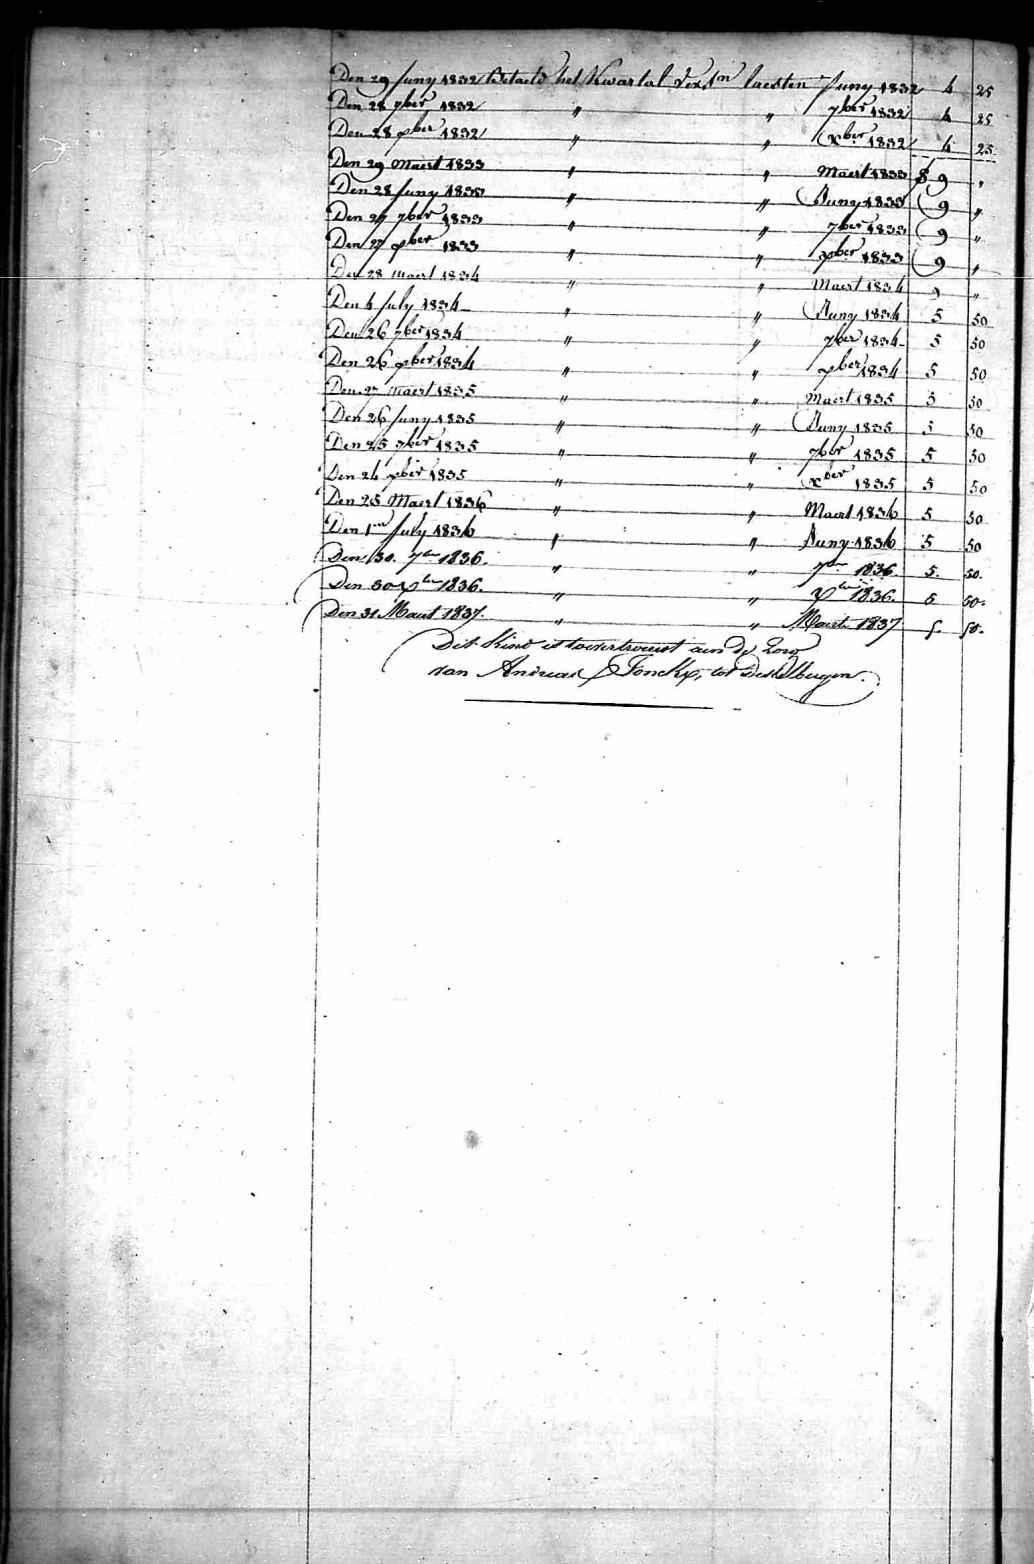 Den 29 Juny 1832 Betaeld het Kwartal laesten Juny 1832 4 25
Den 28 7ber 1832 " " 7ber 1832 4 25
Den 28 xber 1832 " " xber 1832 4 25
Den 29 Maert 1833 " " Maert 1833 9 "
Den 28 Juny 1833 " " Juny 1833 9 "
Den 27 7ber 1833 " " 7ber 1833 9 "
Den 27 xber 1833 " " xber 1833 9 "
Den 28 Maert 1834 " " Maert 1834 9 "
Den 4 July 1834 " " Juny 1834 5 50
Den 26 7ber 1834 " " 7ber 1834 5 50
Den 26 xber 1834 " " xber 1834 5 50
Den 27 Maert 1835 " " Maert 1835 5 50
Den 26 Juny 1835 " " Juny 1835 5 50
Den 25 7ber 1835 " " 7ber 1835 5 50
Den 24 xber 1835 " " xber 1835 5 50
Den 25 Maert 1836 " " Maert 1836 5 50
Den 1en July 1836 " " Juny 1836 5 50
Den 30. 7ber 1836. " " 7ber 1836. 5. 50.
Den 30 xber 1836. " " xber 1836. 5 50.
Den 31 Maert 1837. " " Maert 1837 5. 50.
Dit Kind is toevertrouwt aen de Zorg
van Andreas Fonckx, tot Destelbergen.